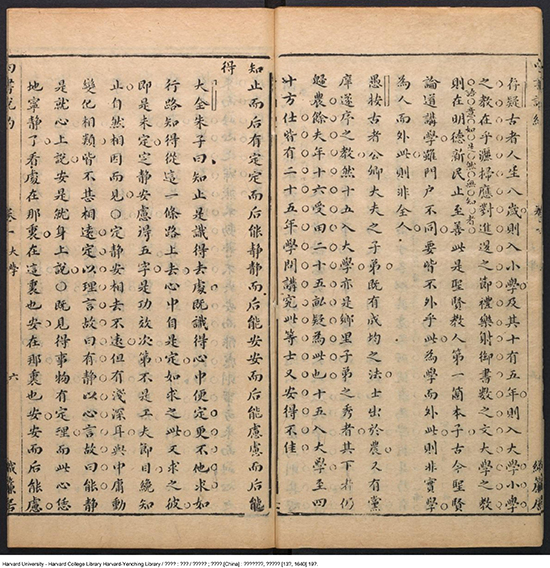 存疑古者人生八歲則入小學及其十有五年則入大學小學
之教在乎灑掃應對進退之節禮樂射御書數之文大學之教
則在明德新民止至善此是聖賢教人第一箇本子古今聖賢
論道講學雖門戶不同要皆不外乎此為學而外此則非實學
為人而外此則非全人
愚按古者公卿大夫之子弟既有成均之法士出於農又有黨
庠遂序之教然十五入大學亦是鄉里子弟之秀者其下者仍
歸農餘夫年十六受田二十五畝疑為此也十五入大學至四
十方仕皆有二十五年學問講究此等士又安得不佳
四書說約
卷一大學
六
織簾居
知止而后有定定而后能靜靜而后能安安而后能慮慮而后能
得
大全朱子曰知止是識得去處既識得心中便定更不他求如
行路知得從這一條路上去心中自是定如求之此又求之彼
即是未定定靜安慮得五字是功效次第不是工夫節目纔知
止自然相因而見○定靜安相去不遠但有淺深耳與中庸動
變化相類皆不甚相遠定以理言故曰有靜以心言故曰能靜
是就心上說安是就身上說○既見得事物有定理而此心恁
地寧靜了看處在那裏在這裏也安在那裏也安安而后能慮
Harvard University - Harvard College Library Harvard-Yenching Library / ???? : ??? / ????? ; ????.[China] : ???????, ????? [13?, 1640] 19?.